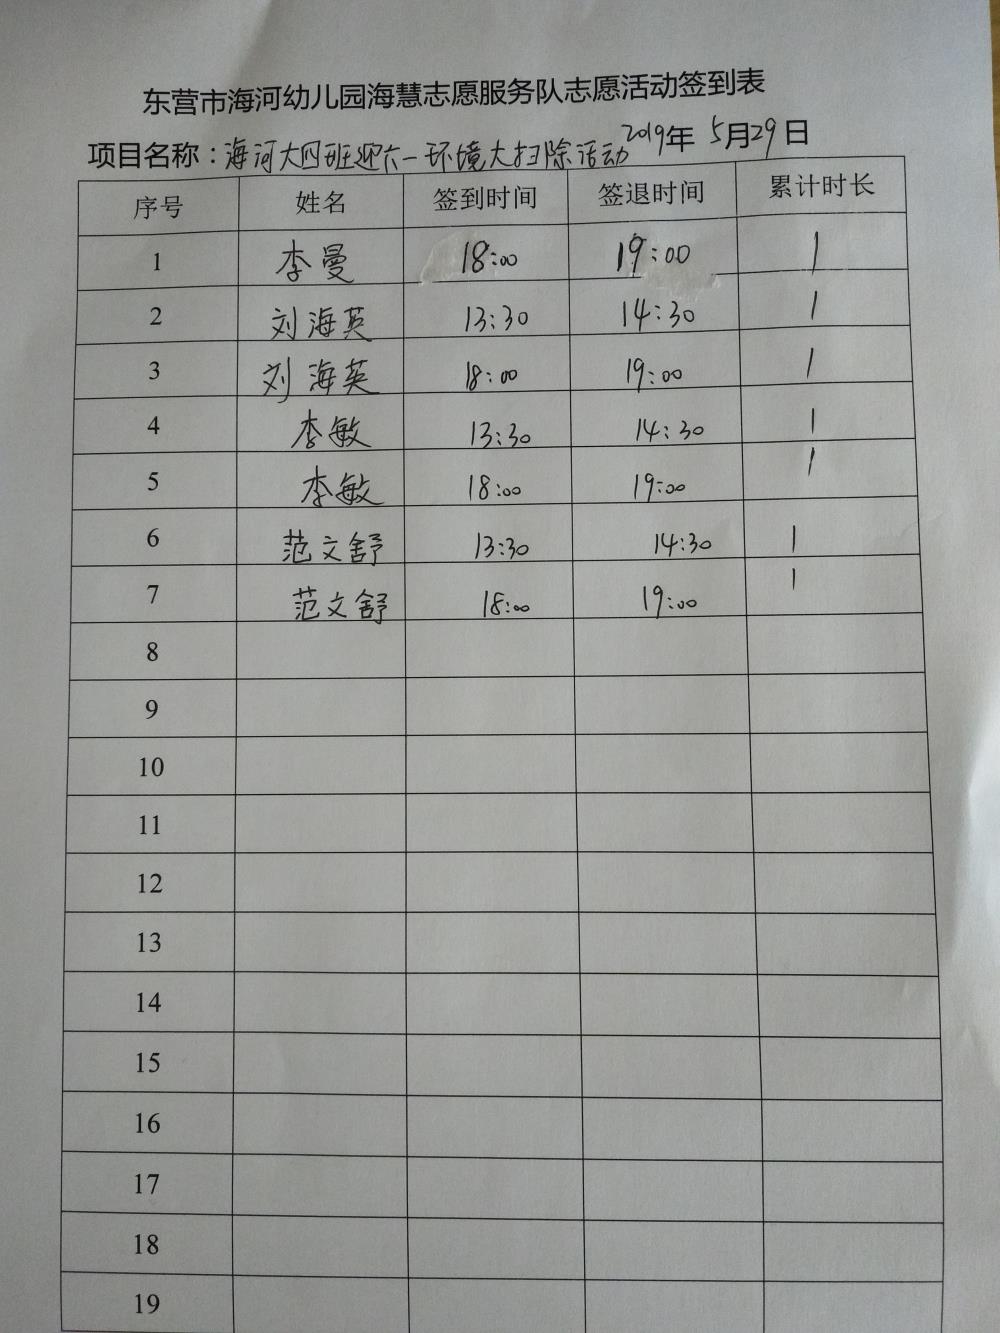 东营市海河幼儿园海慧志愿服务队志愿活动签到表
项目名称：海河大四班迎六一环境大扫除活动 2019年 5月29日
序号 姓名 签到时间 签退时间 累计时长
1 李曼 18:00 19:00 1
2 刘海英 13:30 14:30 1
3 刘海英 18:00 19:00 1
4 李敏 13:30 14:30 1
5 李敏 18:00 19:00 1
6 范文舒 13:30 14:30 1
7 范文舒 18:00 19:00 1
8
9
10
11
12
13
14
15
16
17
18
19